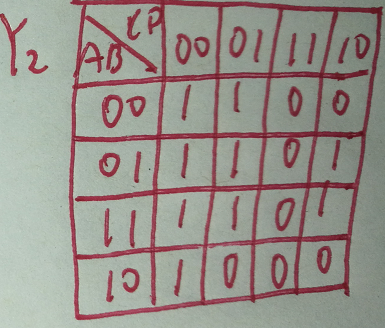 Y2 AB CD 00 01 11 10
00 1 1 0 0
01 1 1 0 1
11 1 1 0 1
10 1 0 0 0